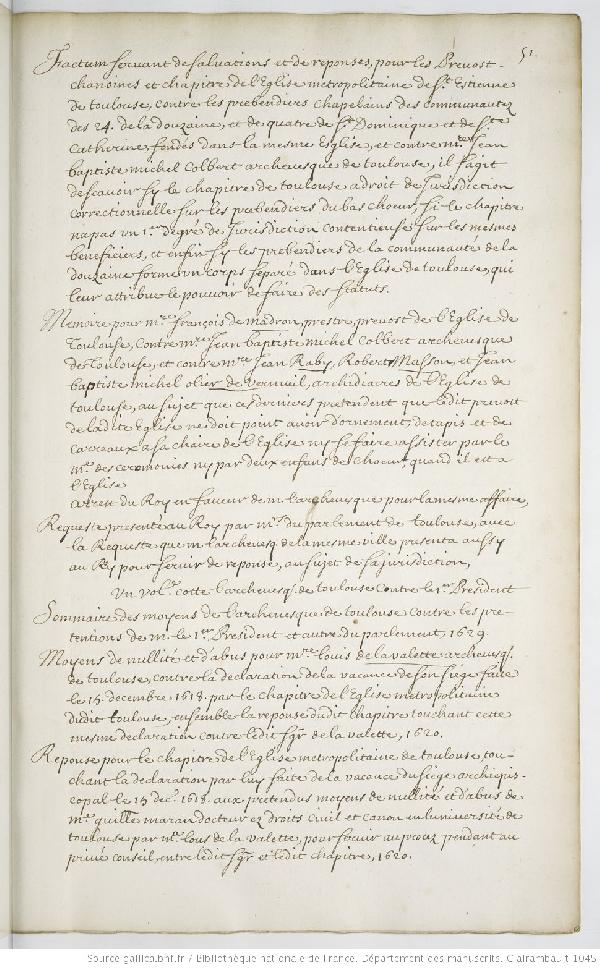 51.
Factum servant de saluations et de reponses, pour les Prevost
chanoines et chapitre de l'Eglise metropolitaine de St. Estienne
de toulouse, contre les prebendiers chapelains des communautez
des 24. de la douzaine, et de quatre de St. Dominique et de Ste
Catherine, fondés dans la mesme Esglise, et contre mre. Jean
baptiste michel Colbert archevesque de toulouse, il s'agit
de scavoir sy le chapitre de toulouse a droit de Jurisdiction
correctionnelle sur les prebendiers du bas choeur, si le chapitre
n'a pas un 1er. degré de Jurisdiction contentieuse sur les mesmes
beneficiers, et enfin sy les prebendiers de la communauté de la
douzaine forme un corps separé dans l'Eglise de toulouse, qui
leur attribue le pouvoir de faire des statuts.
Memoire pour mre. françois de madron, prestre, prevost de l'Eglise de
Toulouse, contre mre. Jean baptiste michel Colbert archevesque
de toulouse, et contre mre. Jean Raby, Robert Masson, et Jean
baptiste michel olier de verneuil, archidiacres de l'Eglise de
toulouse, au sujet que ces derniers pretendent que ledit prevost
de ladite Eglise ne doit point avoir d'ornement, de tapis et de
carreaux a sa chaire de l'Eglise ny se faire assister par le
me. des ceremonies ny par deux enfans de choeur, quand il est a
l'Eglise
arrest du Roy en faveur de mr. l'archevesque pour la mesme affaire,
Requeste presenté au Roy par mrs. du parlement de toulouse, avec
la Requeste que mr. l'archevesq. de la mesme ville presenta aussy
au Roy pour servir de reponse, au sujet de sa jurisdiction,
un vol. cotte l'archevesq. de toulouse contre le 1er. President
Sommaire des moyens de l'archevesque de toulouse contre les pre-
tentions de mr. le 1er. President et autre du parlement, 1629.
Moyens de nullité et d'abus pour mre. louis de la valette archevesq.
de toulouse, contre la declaration de la vacance de son siege faite
le 15 decembre, 1619. par le chapitre de l'Eglise metropolitaine
dudit toulouse, ensemble la reponse dudit chapitre touchant cette
mesme declaration contre ledit sgr. de la valette, 1620.
Reponse pour le chapitre de l'Eglise metropolitaine de toulouse, tou-
chant la declaration par luy faite de la vacance du siege archiepis-
copal le 15 dec. 1619. aux pretendus moyens de nullité et d'abus de
me. guille. maran docteur ez droits civil et canon en l'université de
toulouse par mre. louis de la valette, pour servir au procez pendant au
privé conseil, entre ledit sgr. et ledit chapitre, 1620.
Source gallica.bnf.fr / Bibliothèque nationale de France. Département des manuscrits. Clairambault 1045